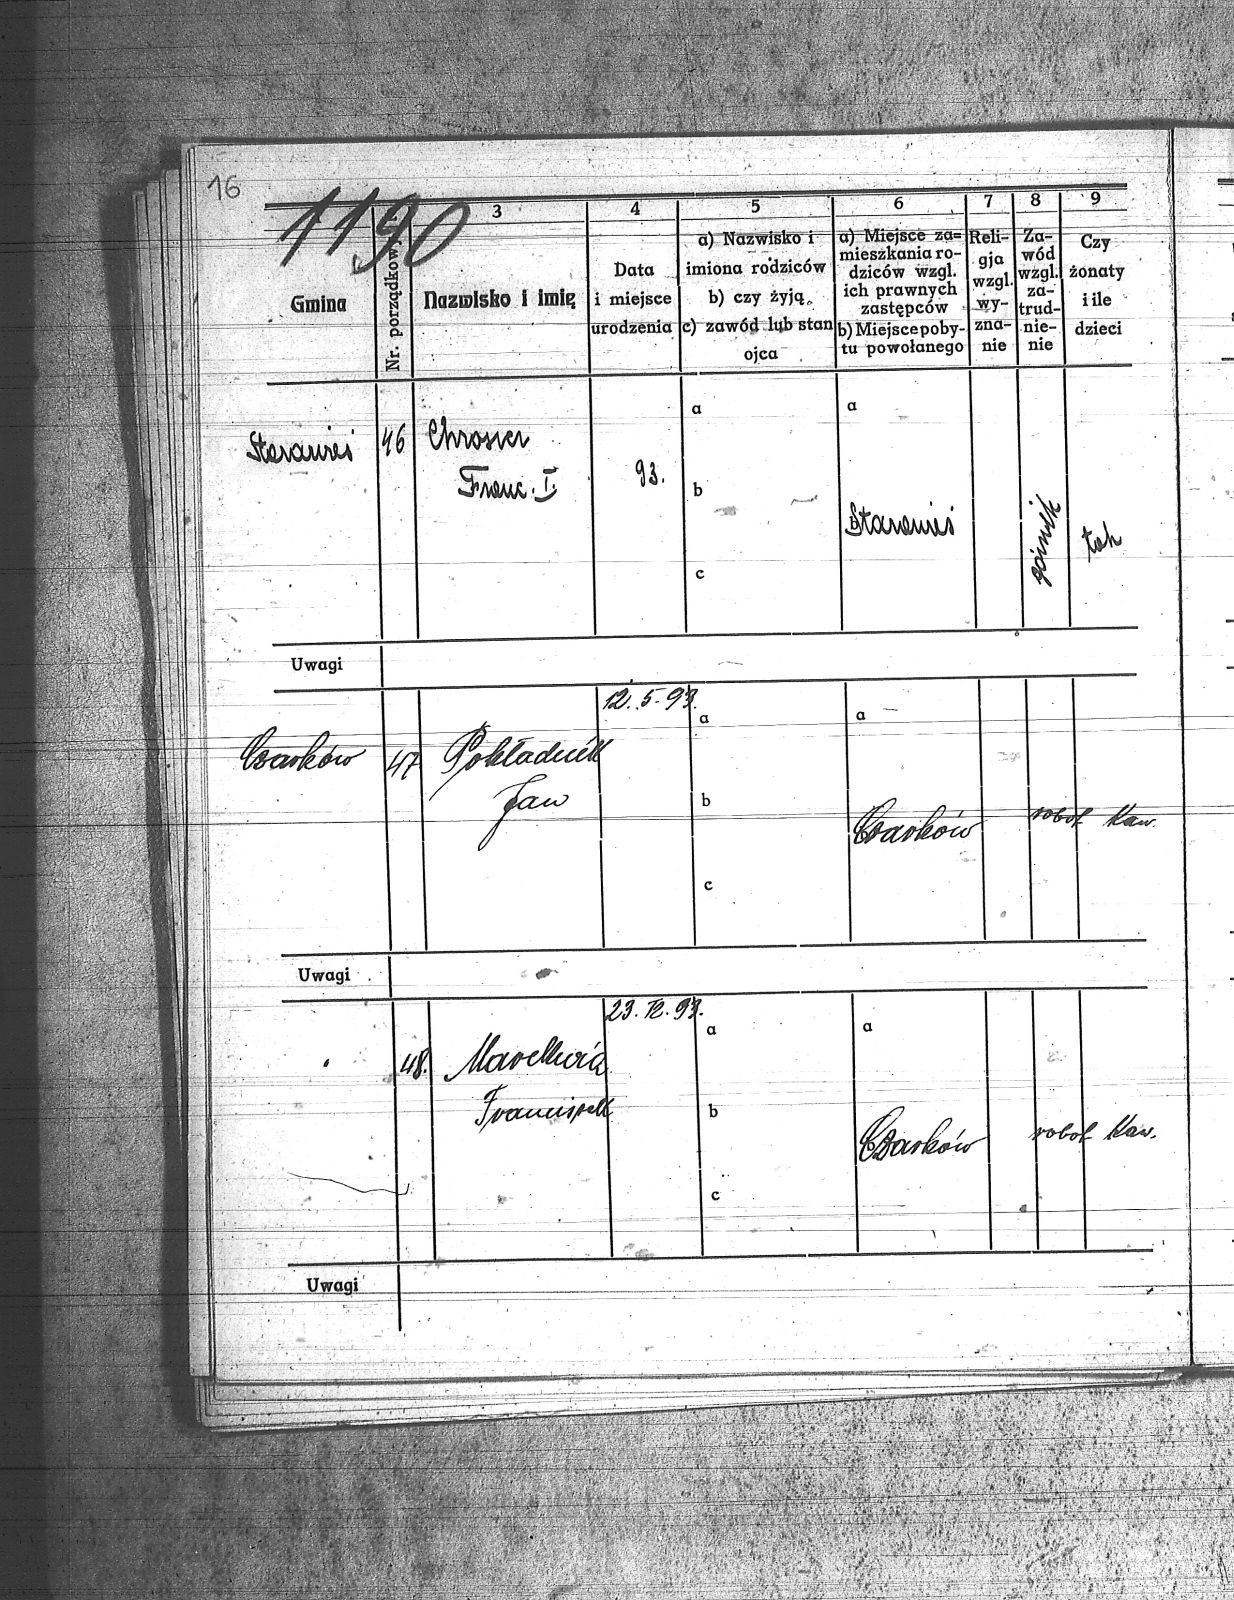 16
1190
3 4 5 6 7 8 9
Gmina
Nr. porządkowy
Nazwisko i imię
Data
i miejsce
urodzenia
a) Nazwisko i
imiona rodziców
b) czy żyją
c) zawód lub stan
ojca
a) Miejsce za-
mieszkania ro-
dziców wzgl.
ich prawnych
zastępców
b) Miejsce poby-
tu powołanego
Reli-
gja
wzgl.
wy-
zna-
nie
Za-
wód
wzgl.
za-
trud-
nie-
nie
Czy
żonaty
i ile
dzieci
Starawieś 46
Franc. I.
93.
a
b
c
a
Starawieś
górnik
tak
Uwagi
Czarków 47 Pokładnik
Jan
12.5.93.
a
b
c
a
Czarków
robot Kaw.
Uwagi
48.
Franciszek
23.12.93.
a
b
c
a
Czarków
robot Kaw.
Uwagi